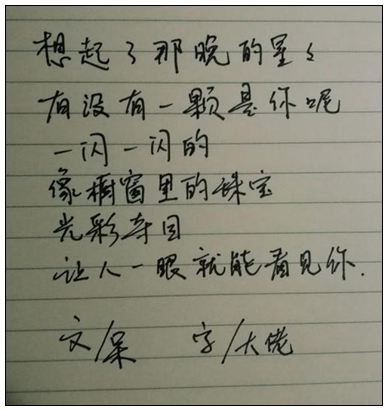 想起了那晚的星々
有没有一颗是你呢
一闪一闪的
像橱窗里的珠宝
光彩夺目
让人一眼就能看见你.
文/呆 字/大佬